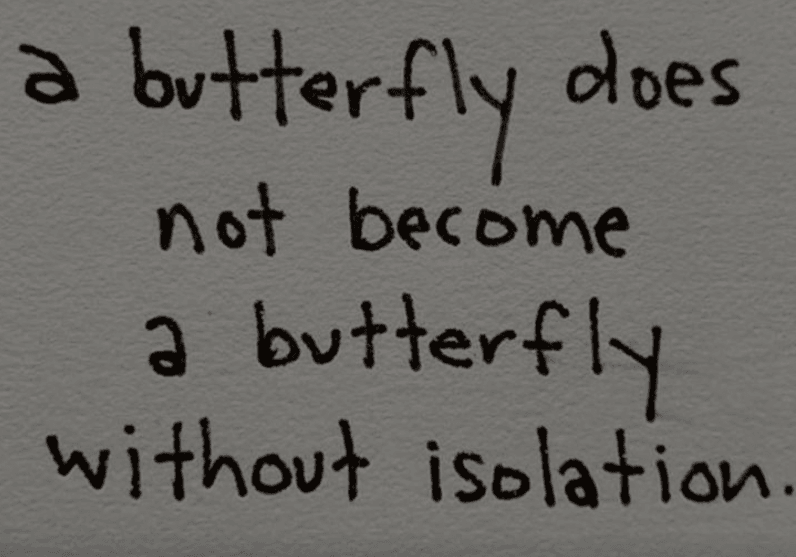 a butterfly does
not become
a butterfly
without isolation.